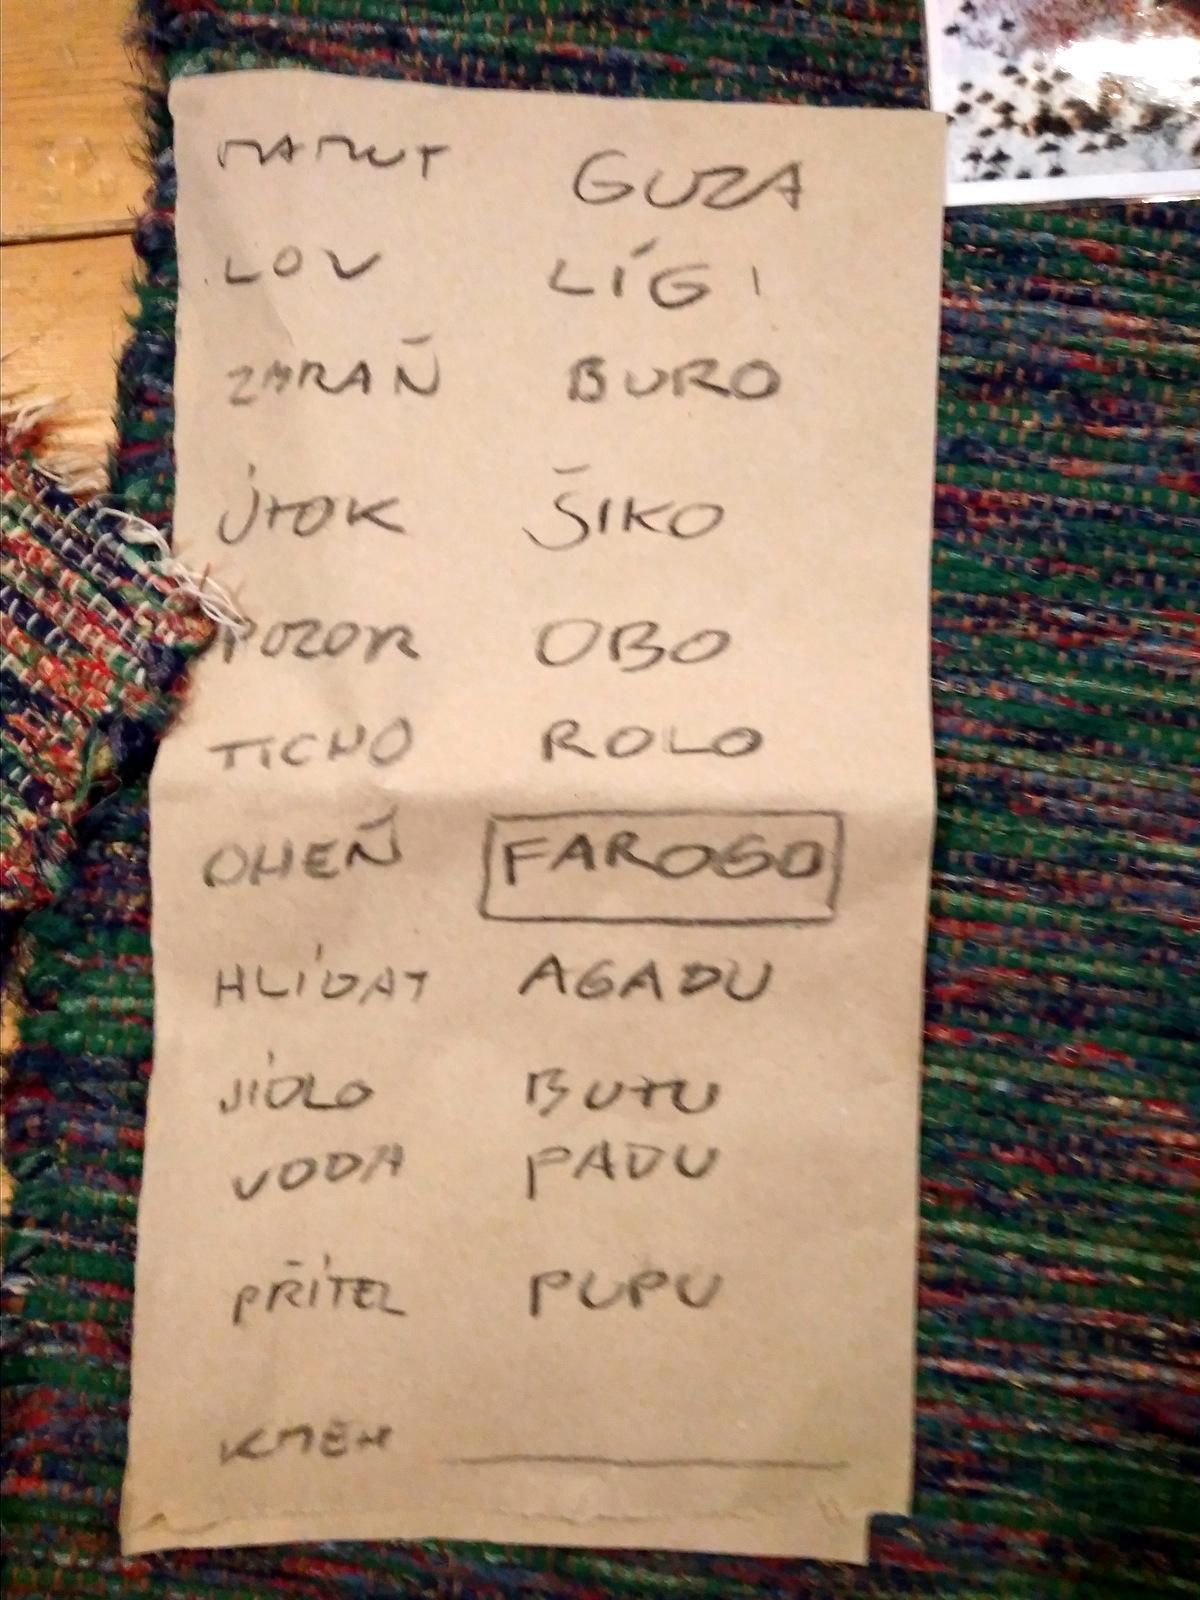 MAMUT GUZA
LOV LÍGI
ZBRAŇ BURO
ÚTOK ŠIKO
POZOR OBO
TICHO ROLO
OHEŇ FAROGO
HLÍDAT AGADU
JÍDLO BUTU
VODA PADU
PŘÍTEL PUPU
KMEN